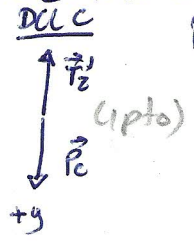 DCL C
T⃗₂'
(1pto)
P⃗c
+y